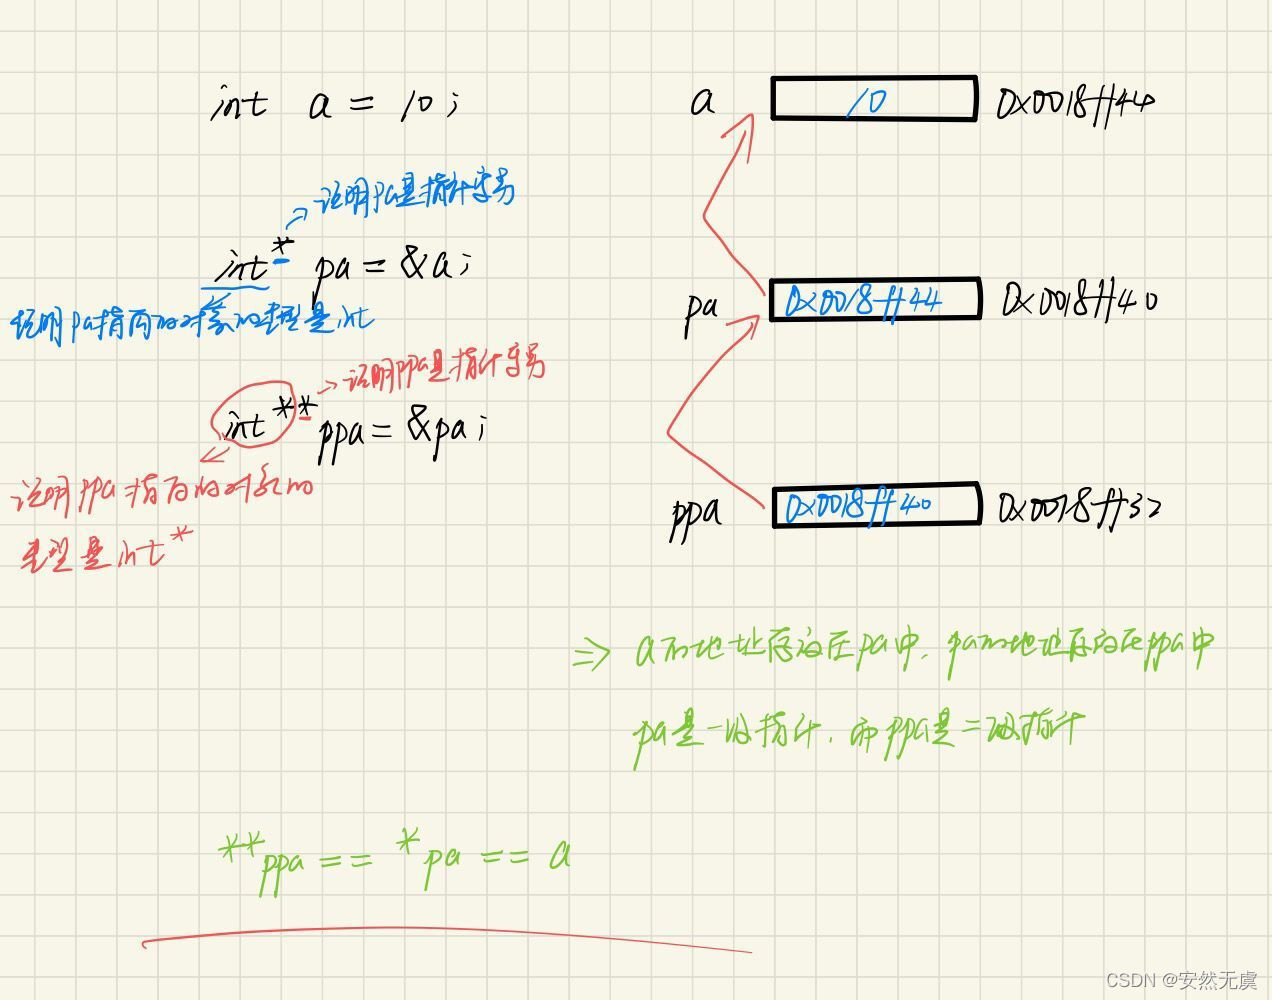 int a = 10;
a 10 0x0018ff44
证明pa是指针变量
int* pa = &a;
证明pa指向的对象的类型是int
pa 0x0018ff44 0x0018ff40
证明ppa是指针变量
int** ppa = &pa;
证明ppa指向的对象的
类型是int*
ppa 0x0018ff40 0x0018ff32
⇒ a的地址存放在pa中, pa的地址存放在ppa中
pa是一级指针, 而ppa是二级指针
**ppa == *pa == a
CSDN @安然无虞